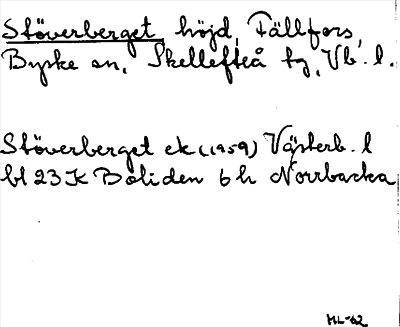 Stöverberget höjd, Fällfors,
Byske sn, Skellefteå tg, Vb. l.
Stöverberget ek (1959) Västerb. l
bl 23 K Boliden 6 h Norrbacka
ML-62